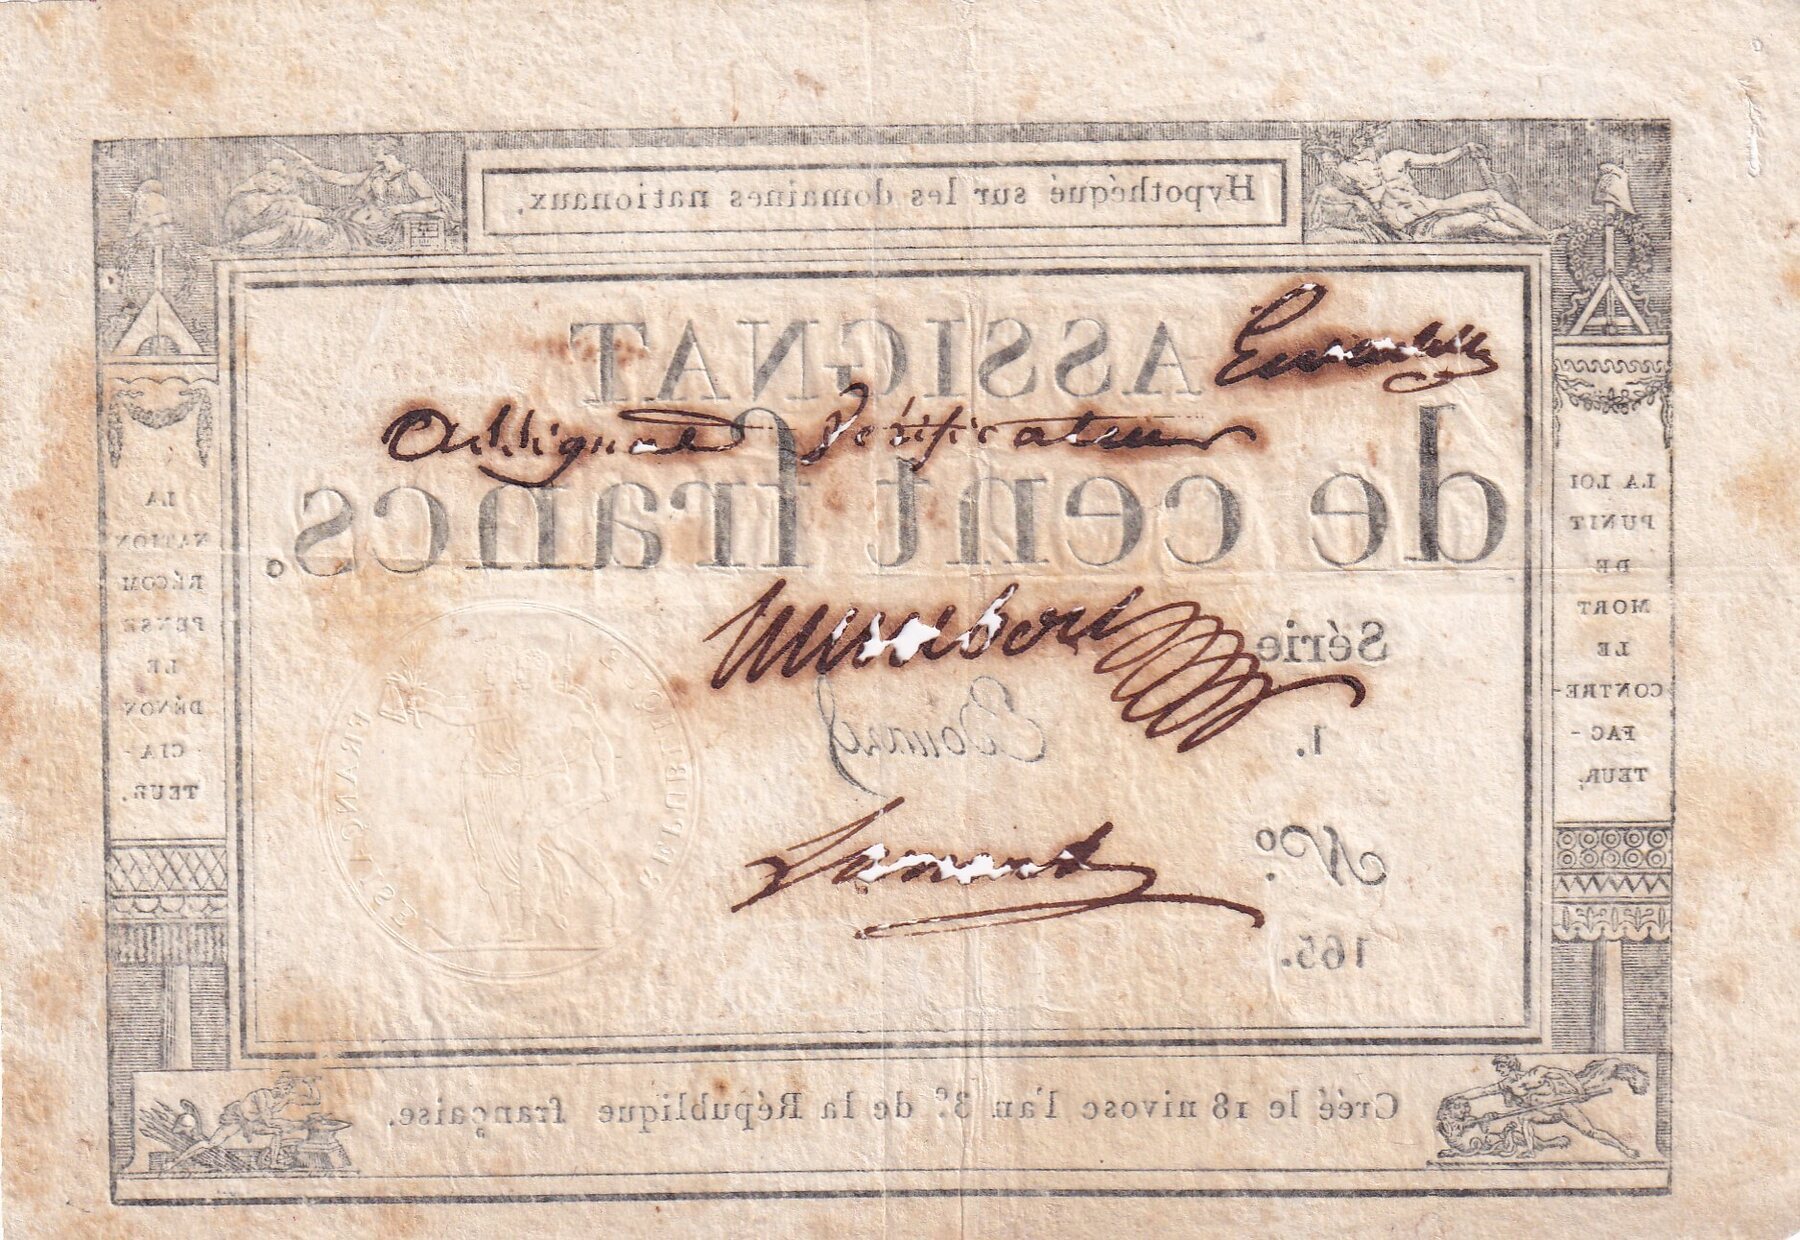 Hypothéqué sur les domaines nationaux.
ASSIGNAT
assignat Vérificateur
de cent francs.
LA
NATION
RÉCOM
PENSE
LE
DÉNON
CIA-
TEUR.
LA LOI
PUNIT
DE
MORT
LE
CONTRE-
FAC-
TEUR.
Série
1.
Nº.
165.
REPUBLIQUE
FRANÇAISE
Créé le 18 nivose l'an 3ᵉ. de la République française.